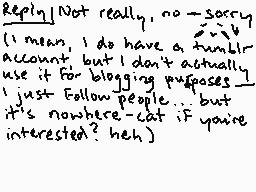 Reply Not really, no - sorry
(I mean, I do have a tumblr
account, but I don't actually
use it for blogging purposes —
I just follow people... but
it's nowhere-cat if you're
interested? heh)